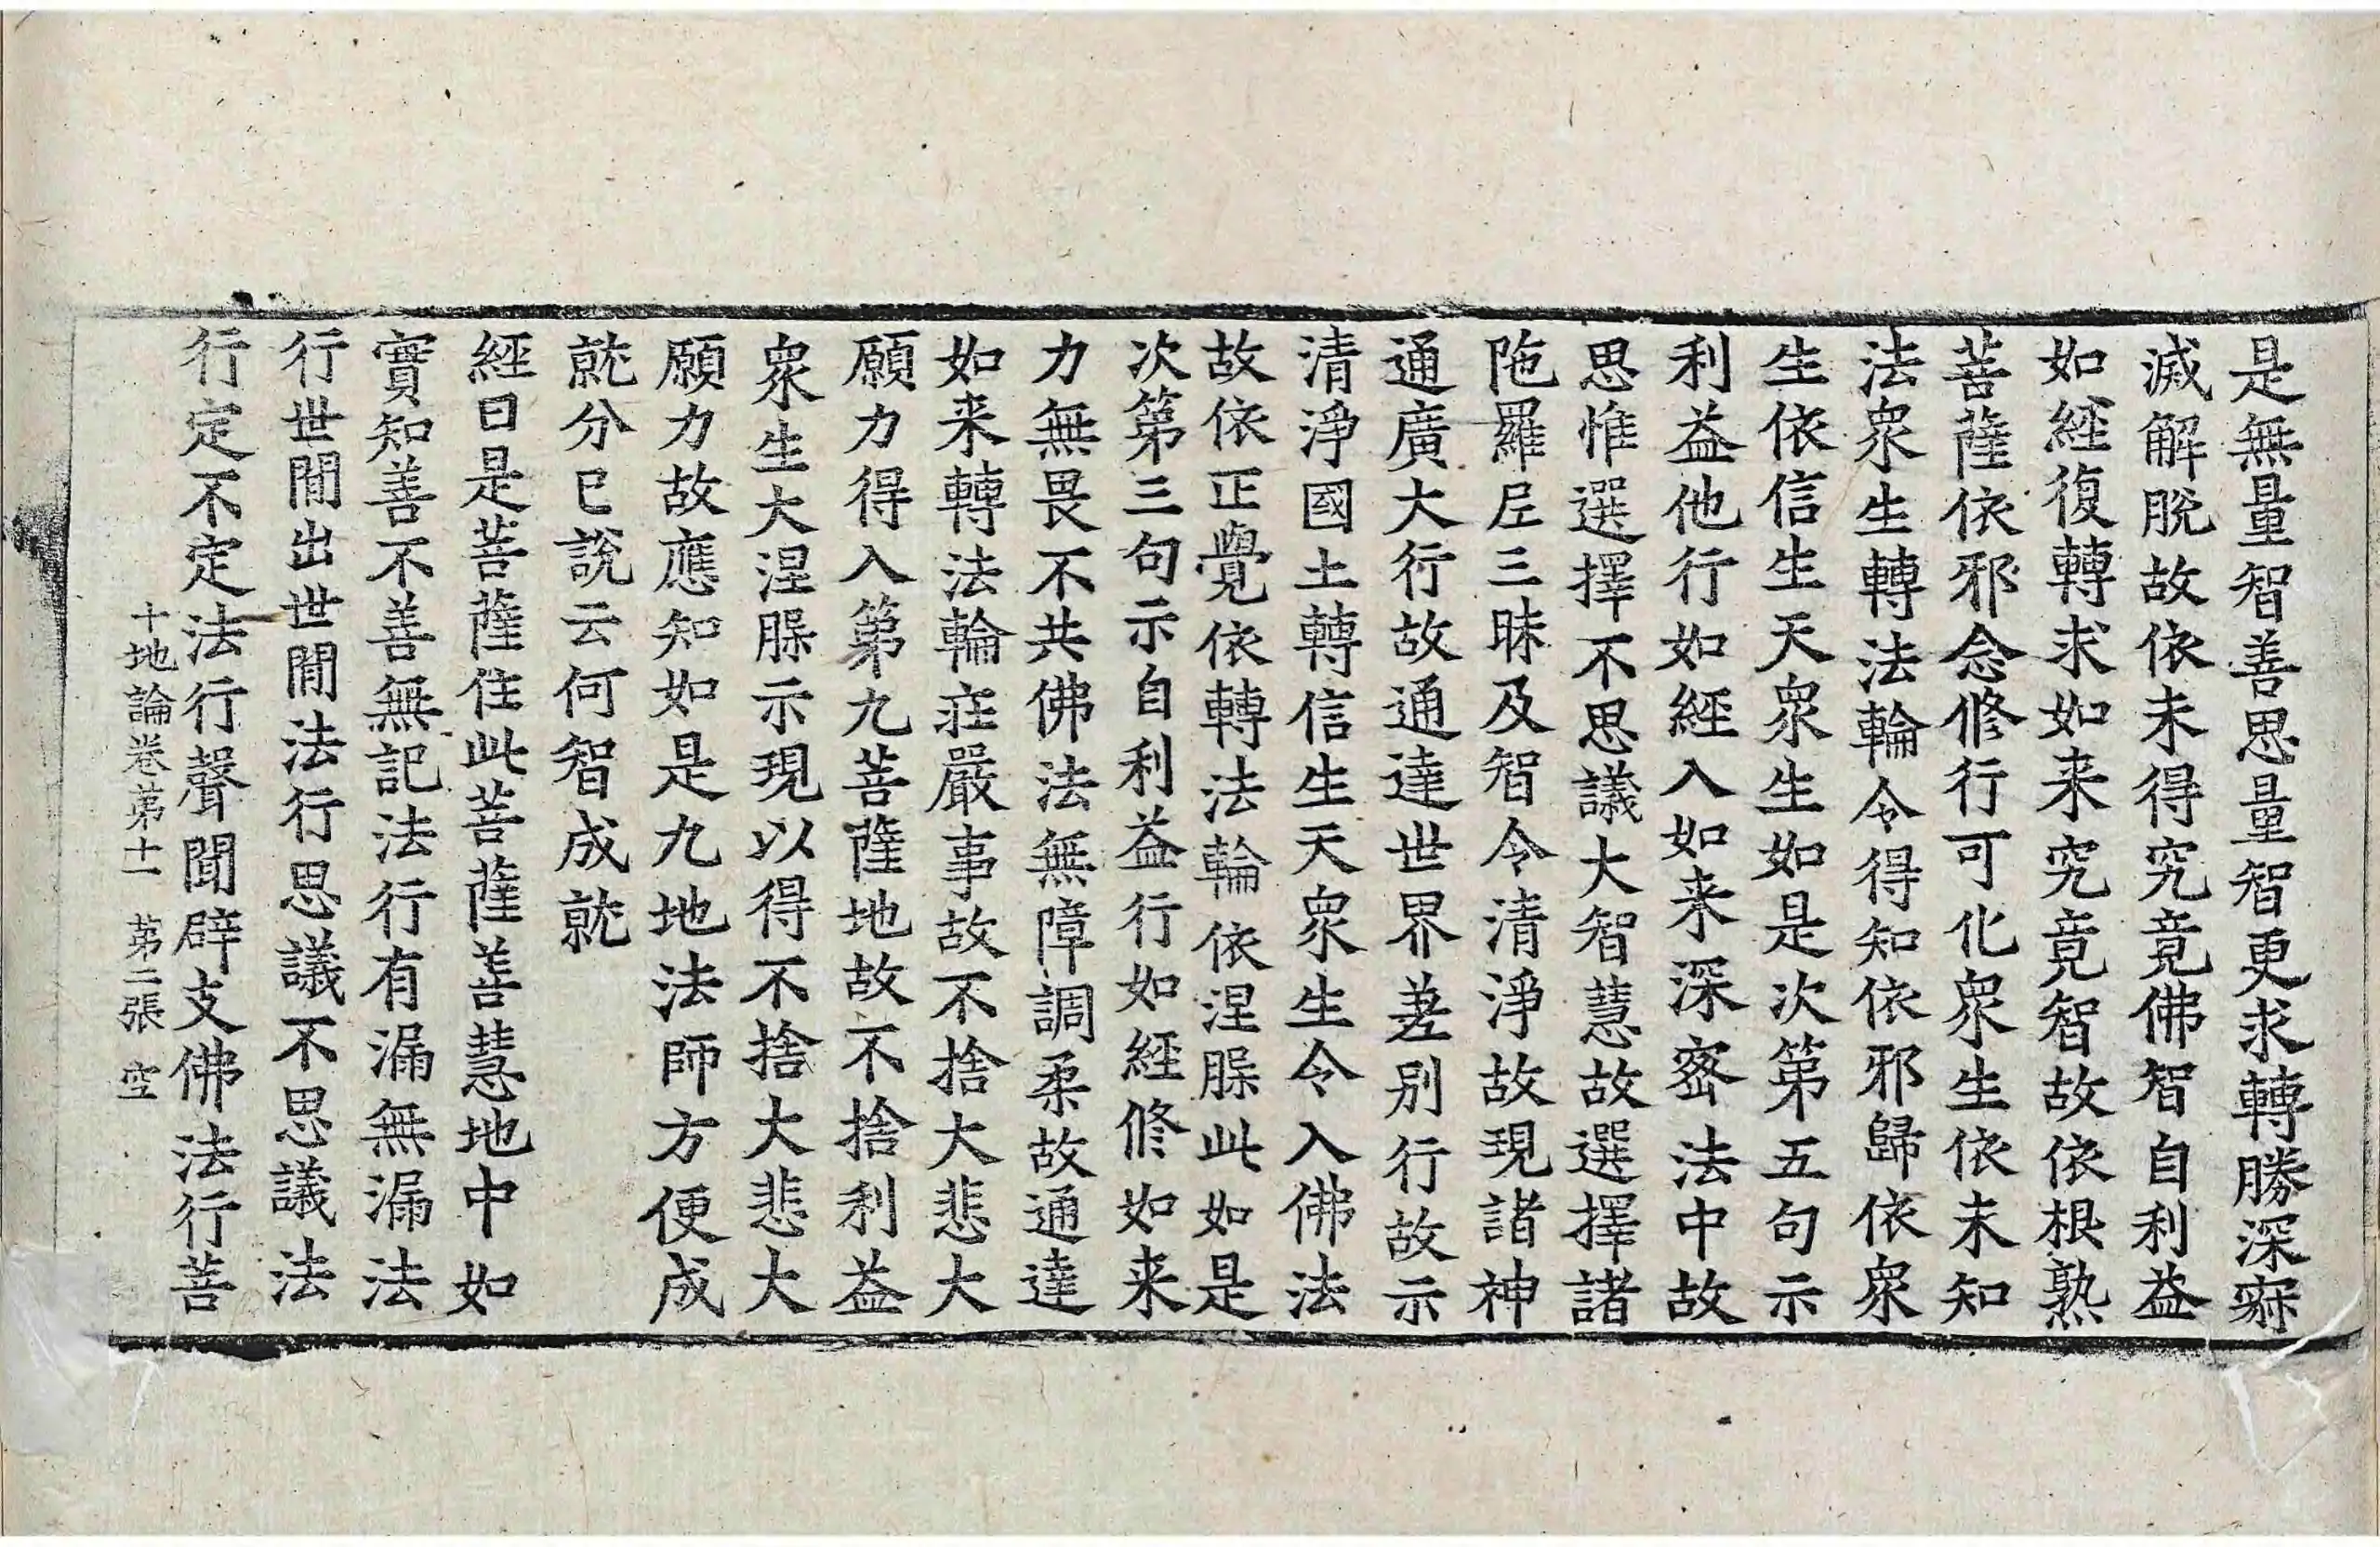 是無量智善思量智更求轉勝深寂
滅解脫故依未得究竟佛智自利益
如經復轉求如来究竟智故依根熟
菩薩依邪念修行可化衆生依未知
法衆生轉法輪令得知依邪歸依衆
生依信生天衆生如是次第五句示
利益他行如經入如来深密法中故
思惟選擇不思議大智慧故選擇諸
陁羅𡰱三昧及智令清淨故現諸神
通廣大行故通達世界差別行故示
清淨國土轉信生天衆生令入佛法
故依正覺依轉法輪依涅槃此如是
次第三句示自利益行如經修如来
力無畏不共佛法無障調柔故通達
如来轉法輪莊嚴事故不捨大悲大
願力得入第九菩薩地故不捨利益
衆生大涅槃示現以得不捨大悲大
願力故應知如是九地法師方便成
就分已說云何智成就
經曰是菩薩住此菩薩善慧地中如
實知善不善無記法行有漏無漏法
行世間出世間法行思議不思議法
行定不定法行聲聞辟支佛法行菩
十地論卷第十一 第二張 空